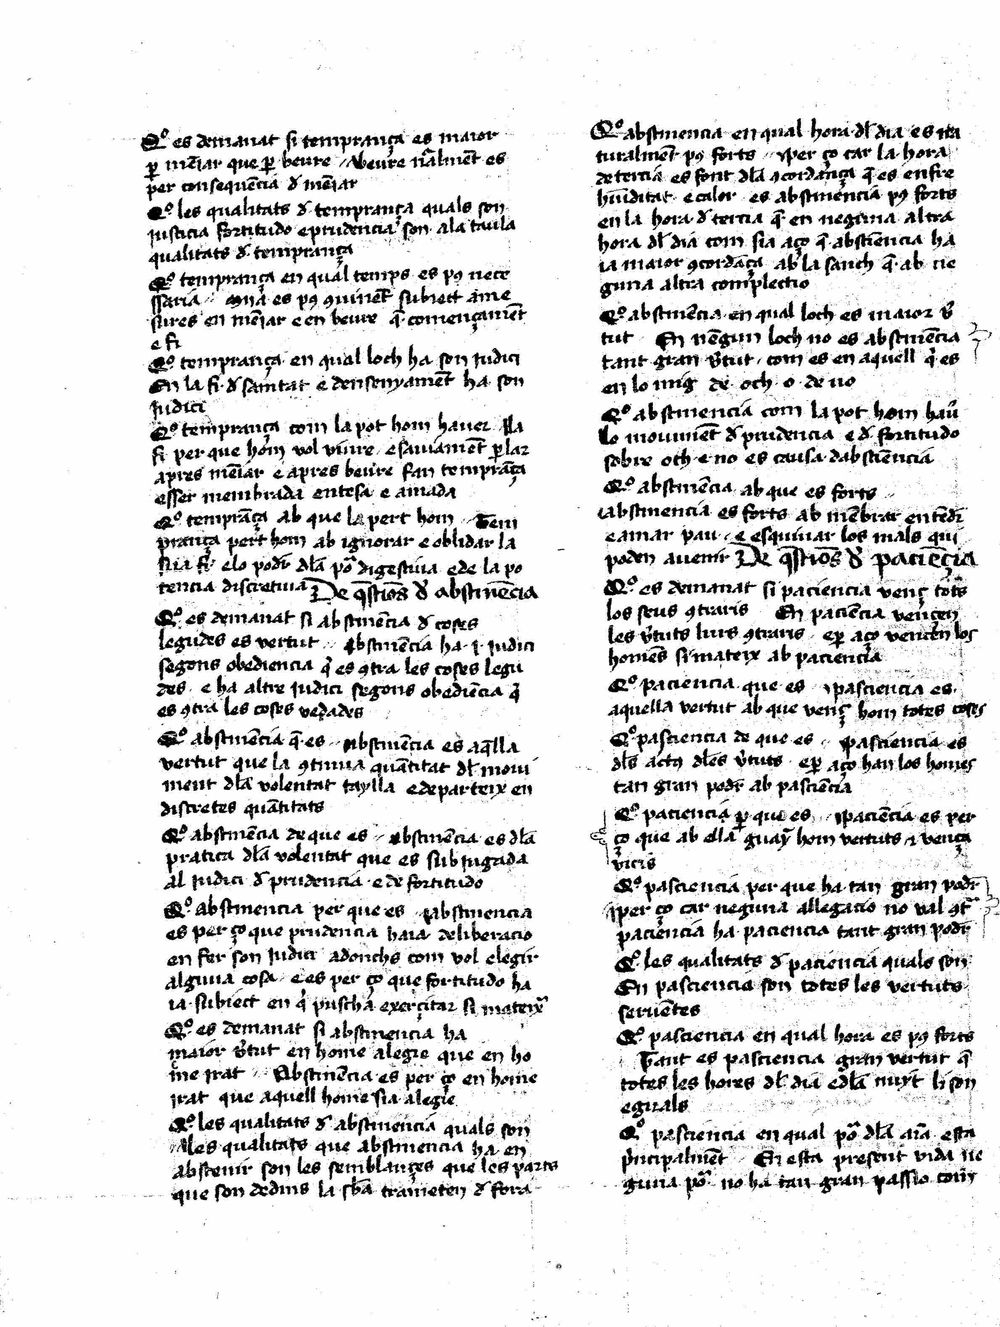 Qº es demanat si temprança es maior
per meniar que per beure · Abeure naturalment es
per consequencia d meniar
Qº les qualitats d temprança quals son
Justicia fortitudo e prudencia son ala taula
qualitats d temprança
Qº temprança en qual temps es pus nece
ssaria ·
sures en meniar e en beure q començament
e fi
Qº temprança en qual loch ha son iudici
En la fi d sanitat e densenyament ha son
iudici
Qº temprança com la pot hom hauer · Ala
fi per que hom vol viure e sauiament parlar
apres meniar e apres beure fan temprança
esser membrada entesa e amada
Qº temprança ab que la pert hom · Tem
prança pert hom ab ignorar e oblidar la
sua fi e lo poder dla digestiua e de la po
tencia discretiua De qstions d abstinencia
Qº es demanat si abstinencia d coses
legudes es vertut · Abstinencia ha ·i· iudici
segons obediencia q es contra les coses legu
des · e ha altre iudici segons obediencia q
es contra les coses vedades
Qº abstinencia q es · Abstinencia es aqlla
vertut que la continua quantitat dl moui
ment dla volentat taylla e departeix en
discretes quantitats
Qº abstinencia de que es · Abstinencia es dla
pratica dla volentat que es subiugada
al iudici d prudencia · e de fortitudo
Qº abstinencia per que es · abstinencia
es per ço que prudencia haia deliberacio
en fer son iudici adonchs com vol elegir
alguna cosa · e es per ço que fortitudo ha
ia subiect en q puscha exercitar si mateix
Qº es demanat si abstinencia ha
maior vtut en home alegre que en ho
me irat · Abstinencia es per ço en home
irat que aquell home sia alegre
Qº les qualitats d abstinencia quals son
Ales qualitats que abstinencia ha en
abstenir son les semblançes que les parts
que son dedins la sba trameten d fora
Qº abstinencia en qual hora dl dia es na
turalment pus forts · per ço car la hora
de tercia es font dla concordança q es enfre
humiditat e calor · es abstinencia pus forts
en la hora d tercia q en neguna altra
hora dl dia com sia aço q abstinencia ha
ia maior concordança ab la sanch q ab ne
guna altra complectio
Qº abstinencia en qual loch es maior v
tut · En negun loch no es abstinencia
tant gran vtut · com es en aquell q es
en lo mig de och · o · de no
Qº abstinencia com la pot hom hauer
Lo mouiment d prudencia e d fortitudo
sobre och e no es causa dabstinencia
Qº abstinencia ab que es forts
abstinencia es forts ab membrar entendr
e amar pau · e esquiuar los mals qui
poden auenir De qstions d paciencia
Qº es demanat si paciencia venç tots
los seus contraris · En paciencia vençen
les vtuts lurs contraris · e per aço vencen los
homens si mateix ab paciencia
Qº paciencia que es · pasciencia es
aquella vertut ab que venç hom totes coses
Qº pasciencia de que es · pasciencia es
dls actus dles vtuts · e per aço han los homes
tan gran podr ab pasciencia
Qº paciencia per que es · paciencia es per
ço que ab ella guany hom vertuts e vença
vicis
Qº pasciencia per que ha tan gran podr
per ço car neguna allegacio no val contra
paciencia ha paciencia tant gran podr
Qº les qualitats d paciencia quals son
En pasciencia son totes les vertuts
seruentes
Qº pasciencia en qual hora es pus forts
Tant es pasciencia gran vertut q
totes les hores dl dia e dla nuyt li son
eguals
Qº pasciencia en qual dla aia esta
principalment · En esta present vida ne
guna no ha tan gran passio com